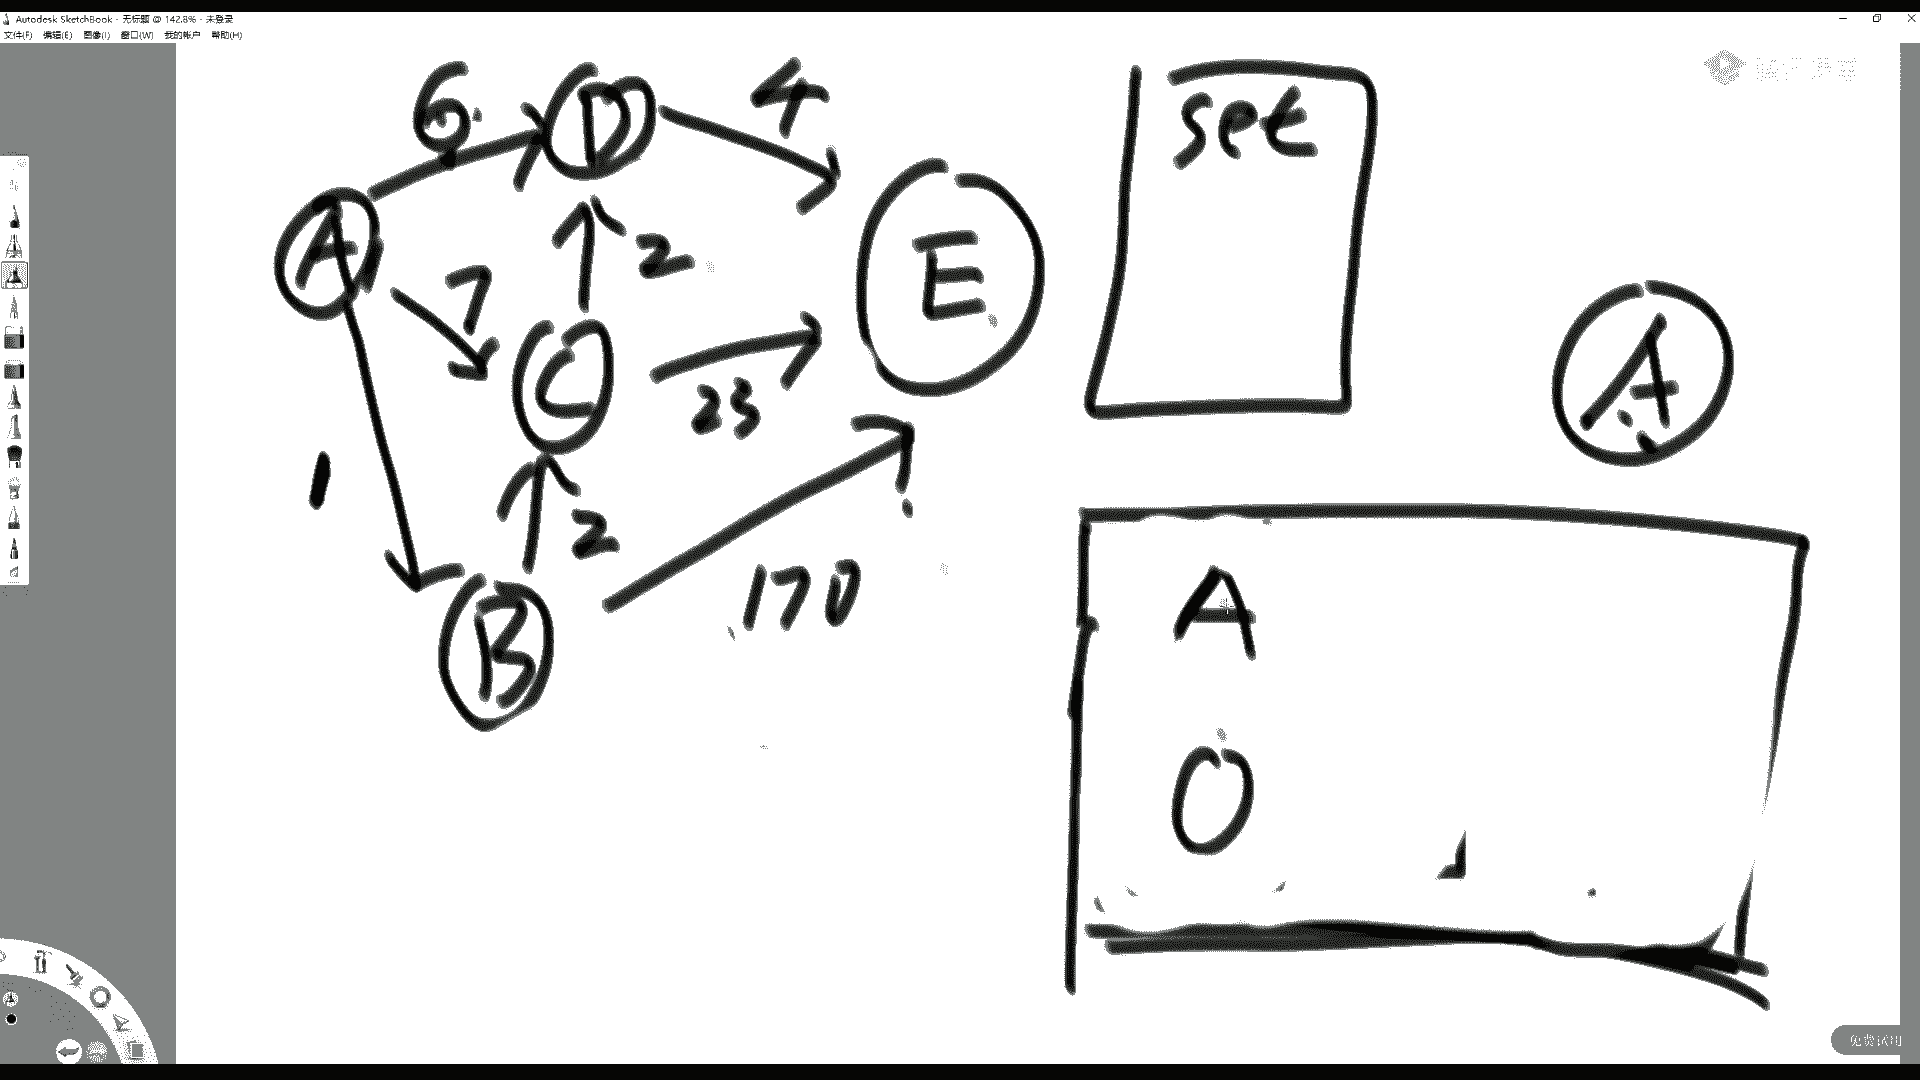 Autodesk SketchBook - 无标题 @ 142.8% - 未登录
文件(F) 编辑(E) 图像(I) 窗口(W) 我的帐户 帮助(H)
6
D
4
set
A
E
2
7
C
23
A
1
2
B
170
A
0
免费试用